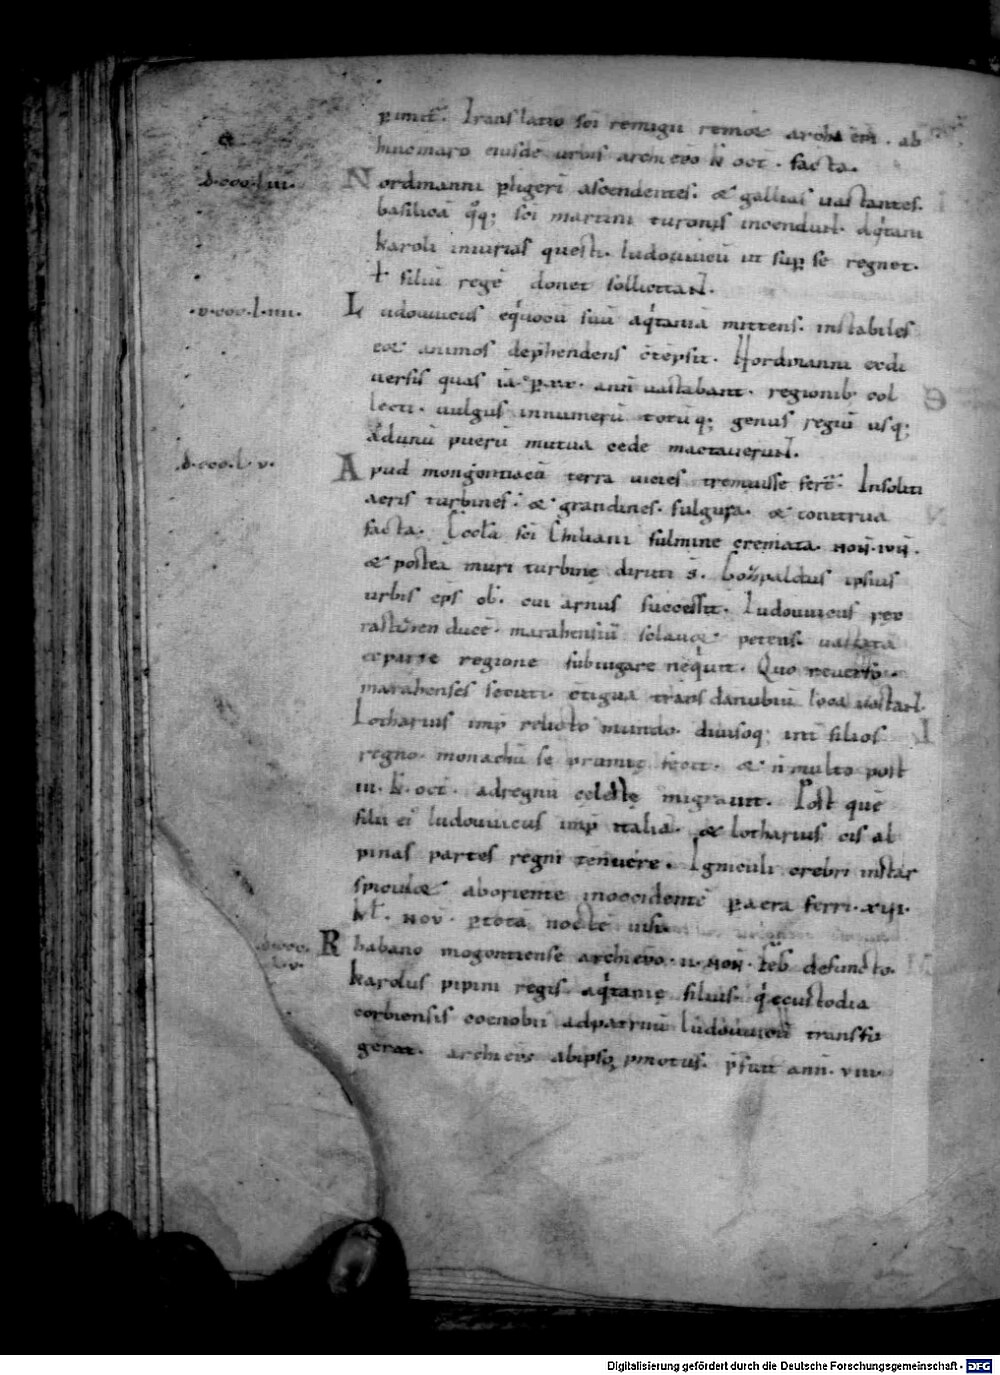 pimit͛. Translatio sc̄i remigii remoꝝ archiēpi. ab
hincmaro eiusdē urbis archiep̄o k̄ oct̄. facta.
d·ccc·liii.
Nordmanni p̱ ligerī ascendentes. & gallias uastantes.
basilicā q̊q; sc̄i martini turonis incendunt. Aq̇tani
karoli iniurias questi. ludouuicū ut sup̱ se regnet.
ł filiū regē donet sollicitant.
·d·ccc·l·iiii.
Ludouuicus eq̇uocū suū aq̇taniā mittens. instabiles
eoꝝ animos dep̱hendens c̄tēpsit. Nordmanni exdi
uersis quas iā p̱ xx. ann̄ uastabant. regionib; col
lecti. uulgus innumerū totūq; genus regiū usq;
adunū puerū mutua cede mactauerunt.
d·ccc·l·v.
Apud mongontiacū terra uicies tremuisse fert͛. Insoliti
aeris turbines. & grandines. fulgura. & tonitrua
facta. Eccl̄a sc̄i Chiliani fulmine cremata. non̄.
& postea muri turbine diruti s̄. Gozpaldus ipsius
urbis ep̄s ob̄. cui arnus successit. Ludouuicus
ducē. marahensiū petens. uastata
ex parte regione subiugare neq̇uit. Quo reuerso.
marahenses secuti. c̄tigua trans danubiū loca uastant.
Lotharius imp̱ relicto mundo. diuisoq; int͛ filios
regno. monachū se prumię fecit. & n̄ multo post
iii. k̄. oct̄. ad regnū celeste migrauit. Post quē
filii ei᾽ ludouuicus imp̱ italiā. & lotharius cis al
pinas partes regni tenuere. Igniculi crebri instar
spiculoꝝ ab oriente in occidentē p̱ aera ferri. xvi.
kł. nov. p̱ totā noctē uisi
d·ccc·
l·v·
Rhabano mogontiense archiep̄o. ii. non̄. feb̄ defuncto.
karolus pipini regis aq̇tanię filius. q̇ ecustodia
corbiensis coenobii adpatruū ludouuicū transfu
gerat. archiep̄s abipso p̱motus. p̄fuit ann̄. viii.
Digitalisierung gefördert durch die Deutsche Forschungsgemeinschaft - DFG